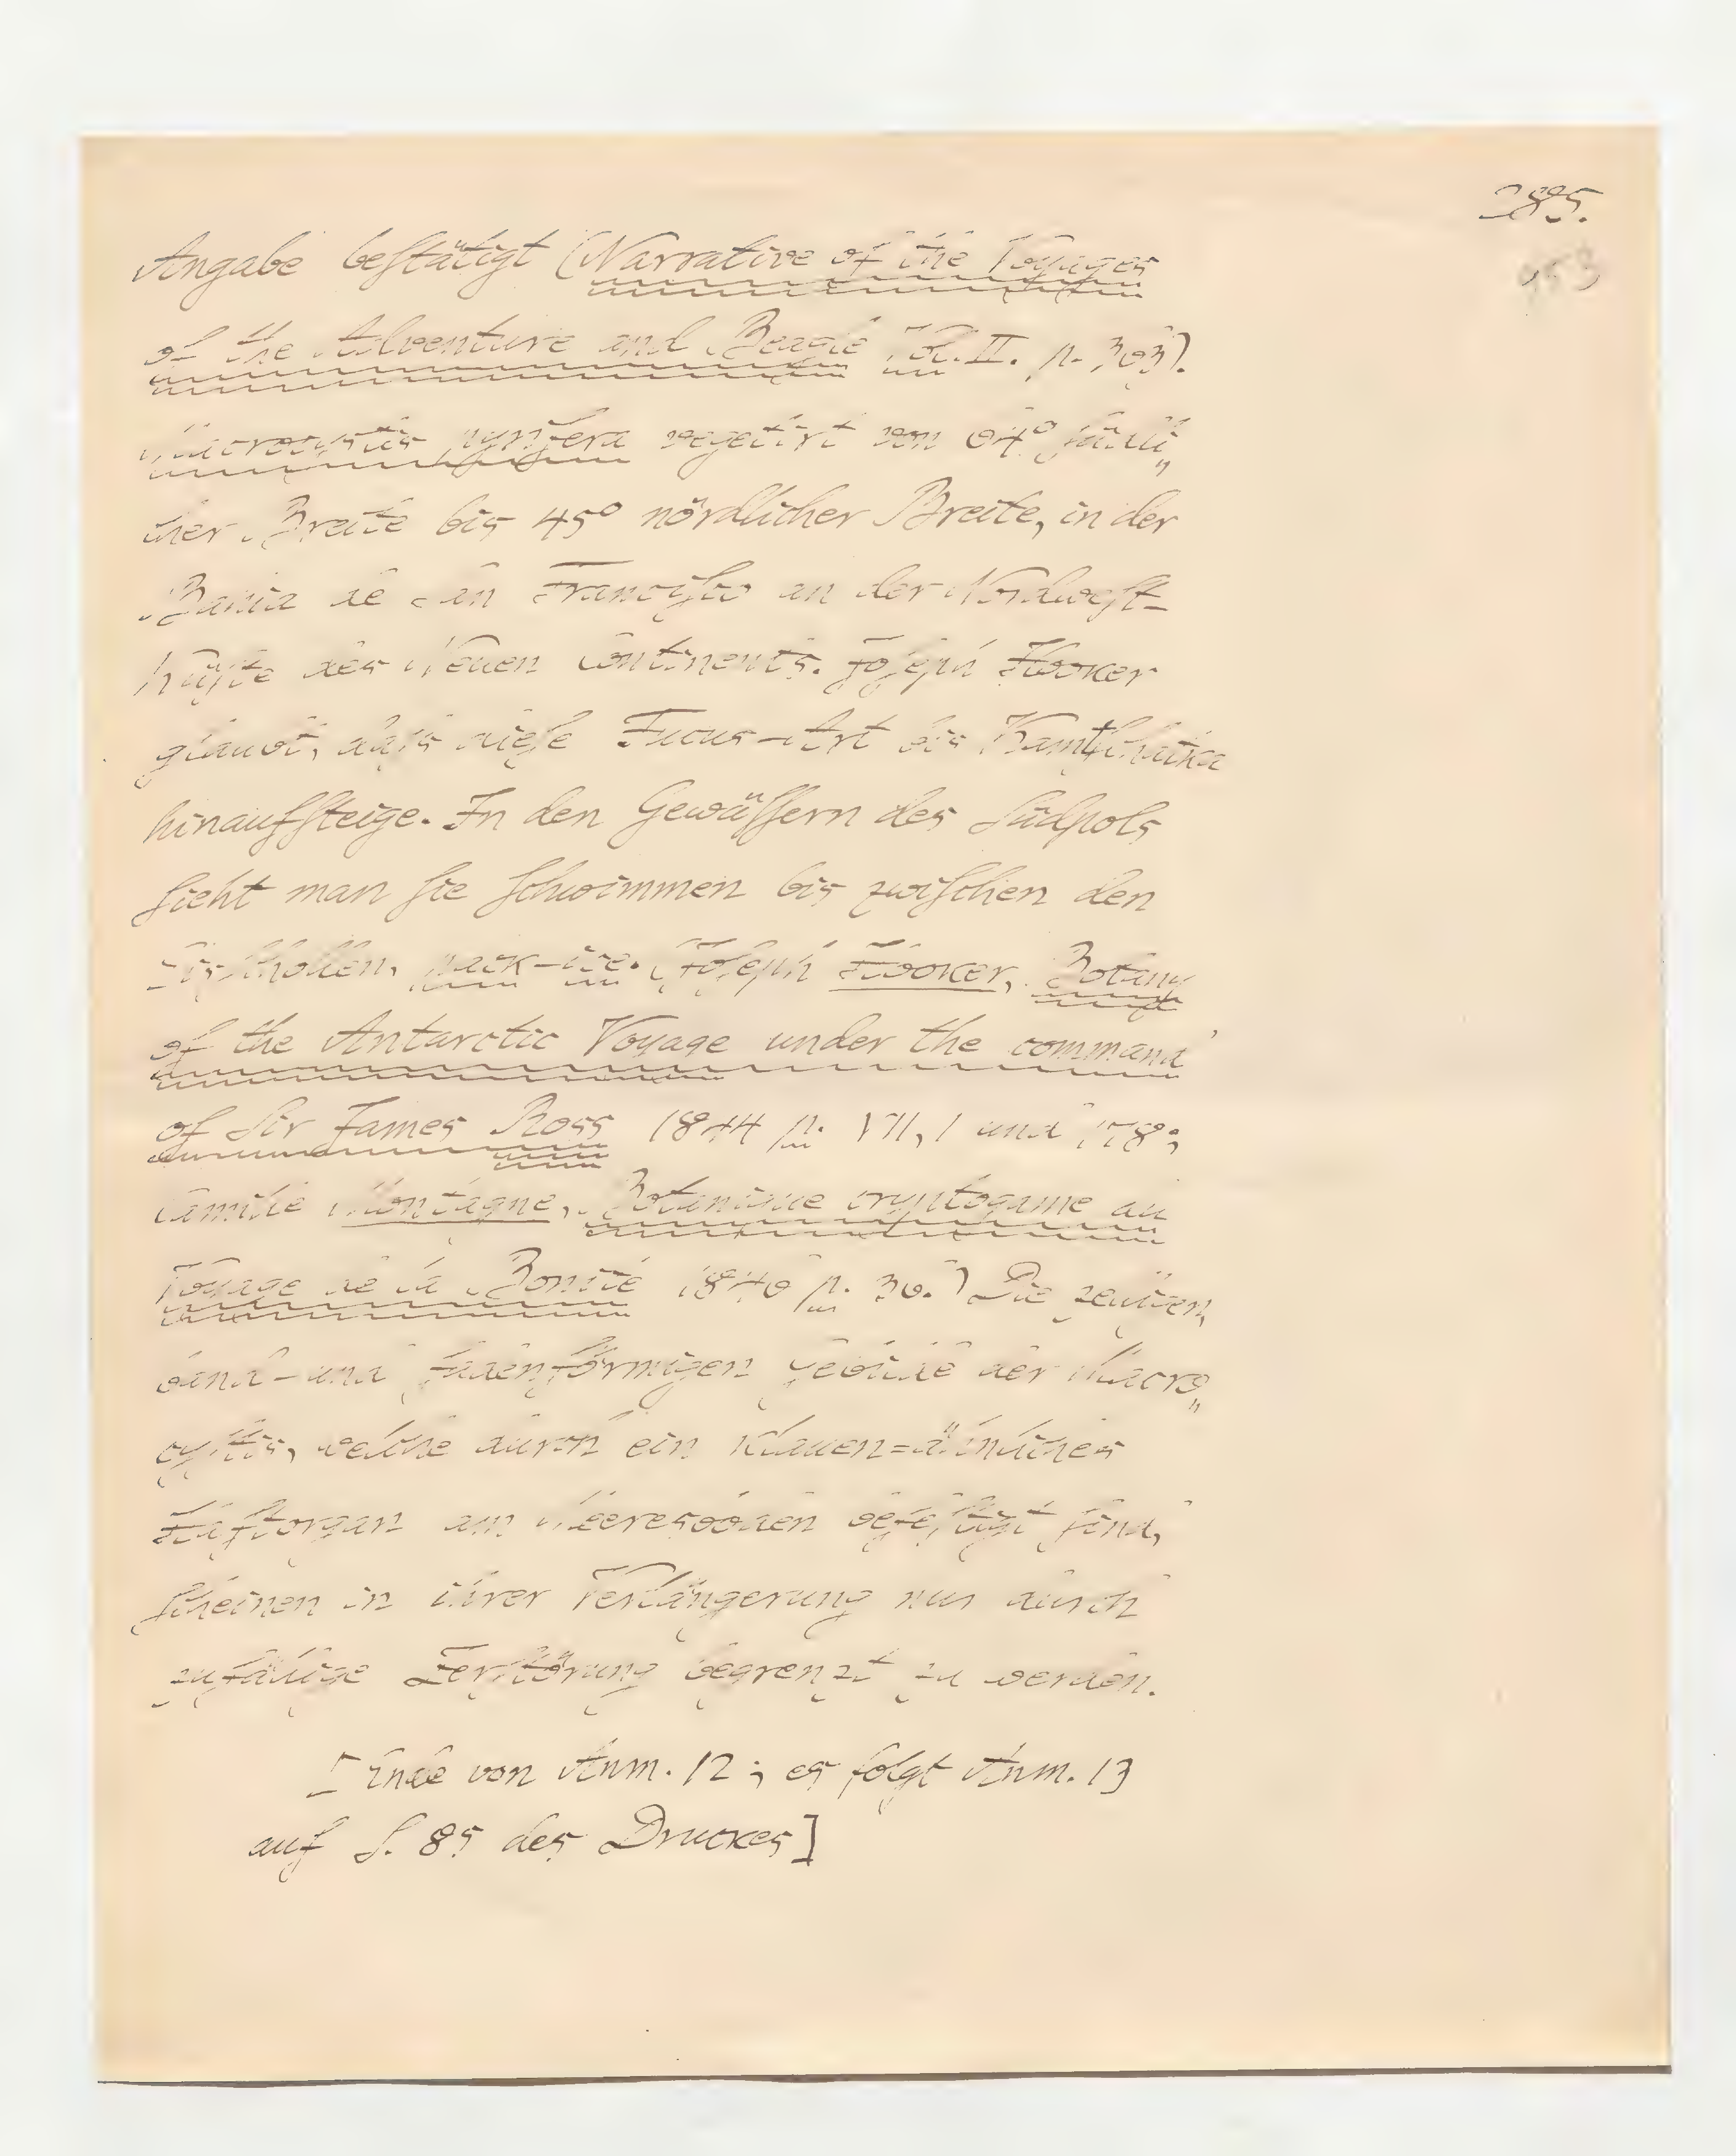 285.
953
Angabe beſtätigt (Narrative of the Voyages
of the Adventure and Beagle Vol. II. p. 363).
Macrocystis pyrifera vegetirt von 64° ſüdli„
cher Breite bis 45° nördlicher Breite, in der
Bahia de San Franciſco an der Nordweſt-
küſte des Neuen Continents. Joſeph Hooker
glaubt, daſs dieſe Fucus-Art bis Kamtſchatka
hinaufſteige. In den Gewäſſern des Südpols
ſieht man ſie ſchwimmen bis zwiſchen den
Eisſchollen, pack-ice. (Joſeph Hooker, Botany
of the Antarctic Voyage under the command
of Sir James Ross 1844 p. VII, 1 und 178;
Camille Montagne, Botanique cryptogame du
Voyage de la Bonite 1846 p. 36.) Die zelligen,
band- und fadenförmigen Gebilde der Macro„
cyſtis, welche durch ein Klauen=ähnliches
Haftorgan am Meeresboden befeſtigt ſind,
ſcheinen in ihrer Verlängerung nur durch
zufällige Zerſtörung begrenzt zu werden.
[Ende von Anm. 12; es folgt Anm. 13
auf S. 85 des Druckes]